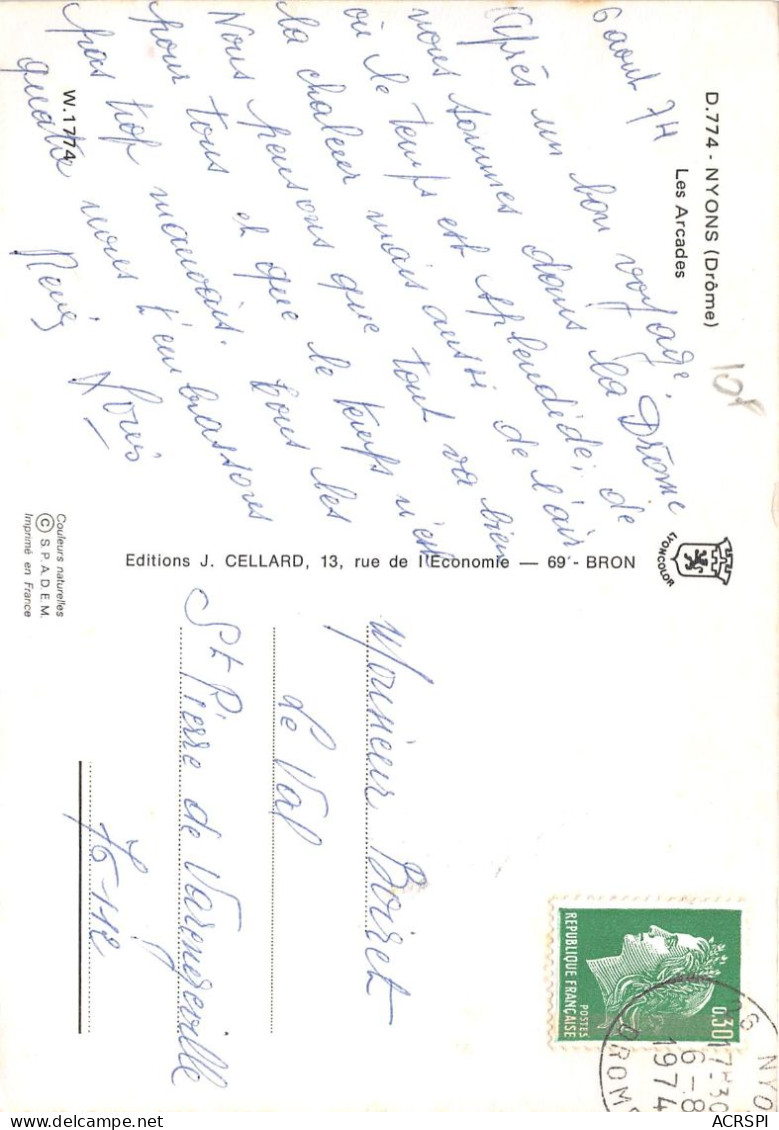 D.774 - NYONS (Drôme)
Les Arcades
6 aout 74
Après un bon voyage,
nous sommes dans la Drôme
où le temps est splendide ; de
la chaleur mais aussi de l'air
Nous pensons que tout va bien
pour tous et que le temps n'est
pas trop mauvais. Tous les
quatre nous t'embrassons
René Louis
W.1774
108
LYONCOLOR
Editions J. CELLARD, 13, rue de l'Economie — 69 - BRON
Couleurs naturelles
© S.P.A.D.E.M.
Imprimé en France
Monsieur Boiret
Le Val
St Pierre de Varengeville
76112
REPUBLIQUE FRANÇAISE
POSTES
0,30
26 NYO
17H30
6-8
1974
DROM
ACRSPI